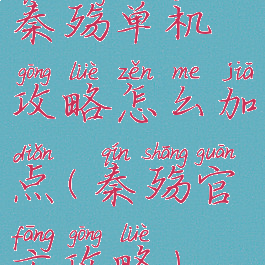 秦殇单机
gōng lüè zěn me jiā
攻略怎么加
diǎn qín shāng guān
点(秦殇官
fāng gōng lüè
方攻略)